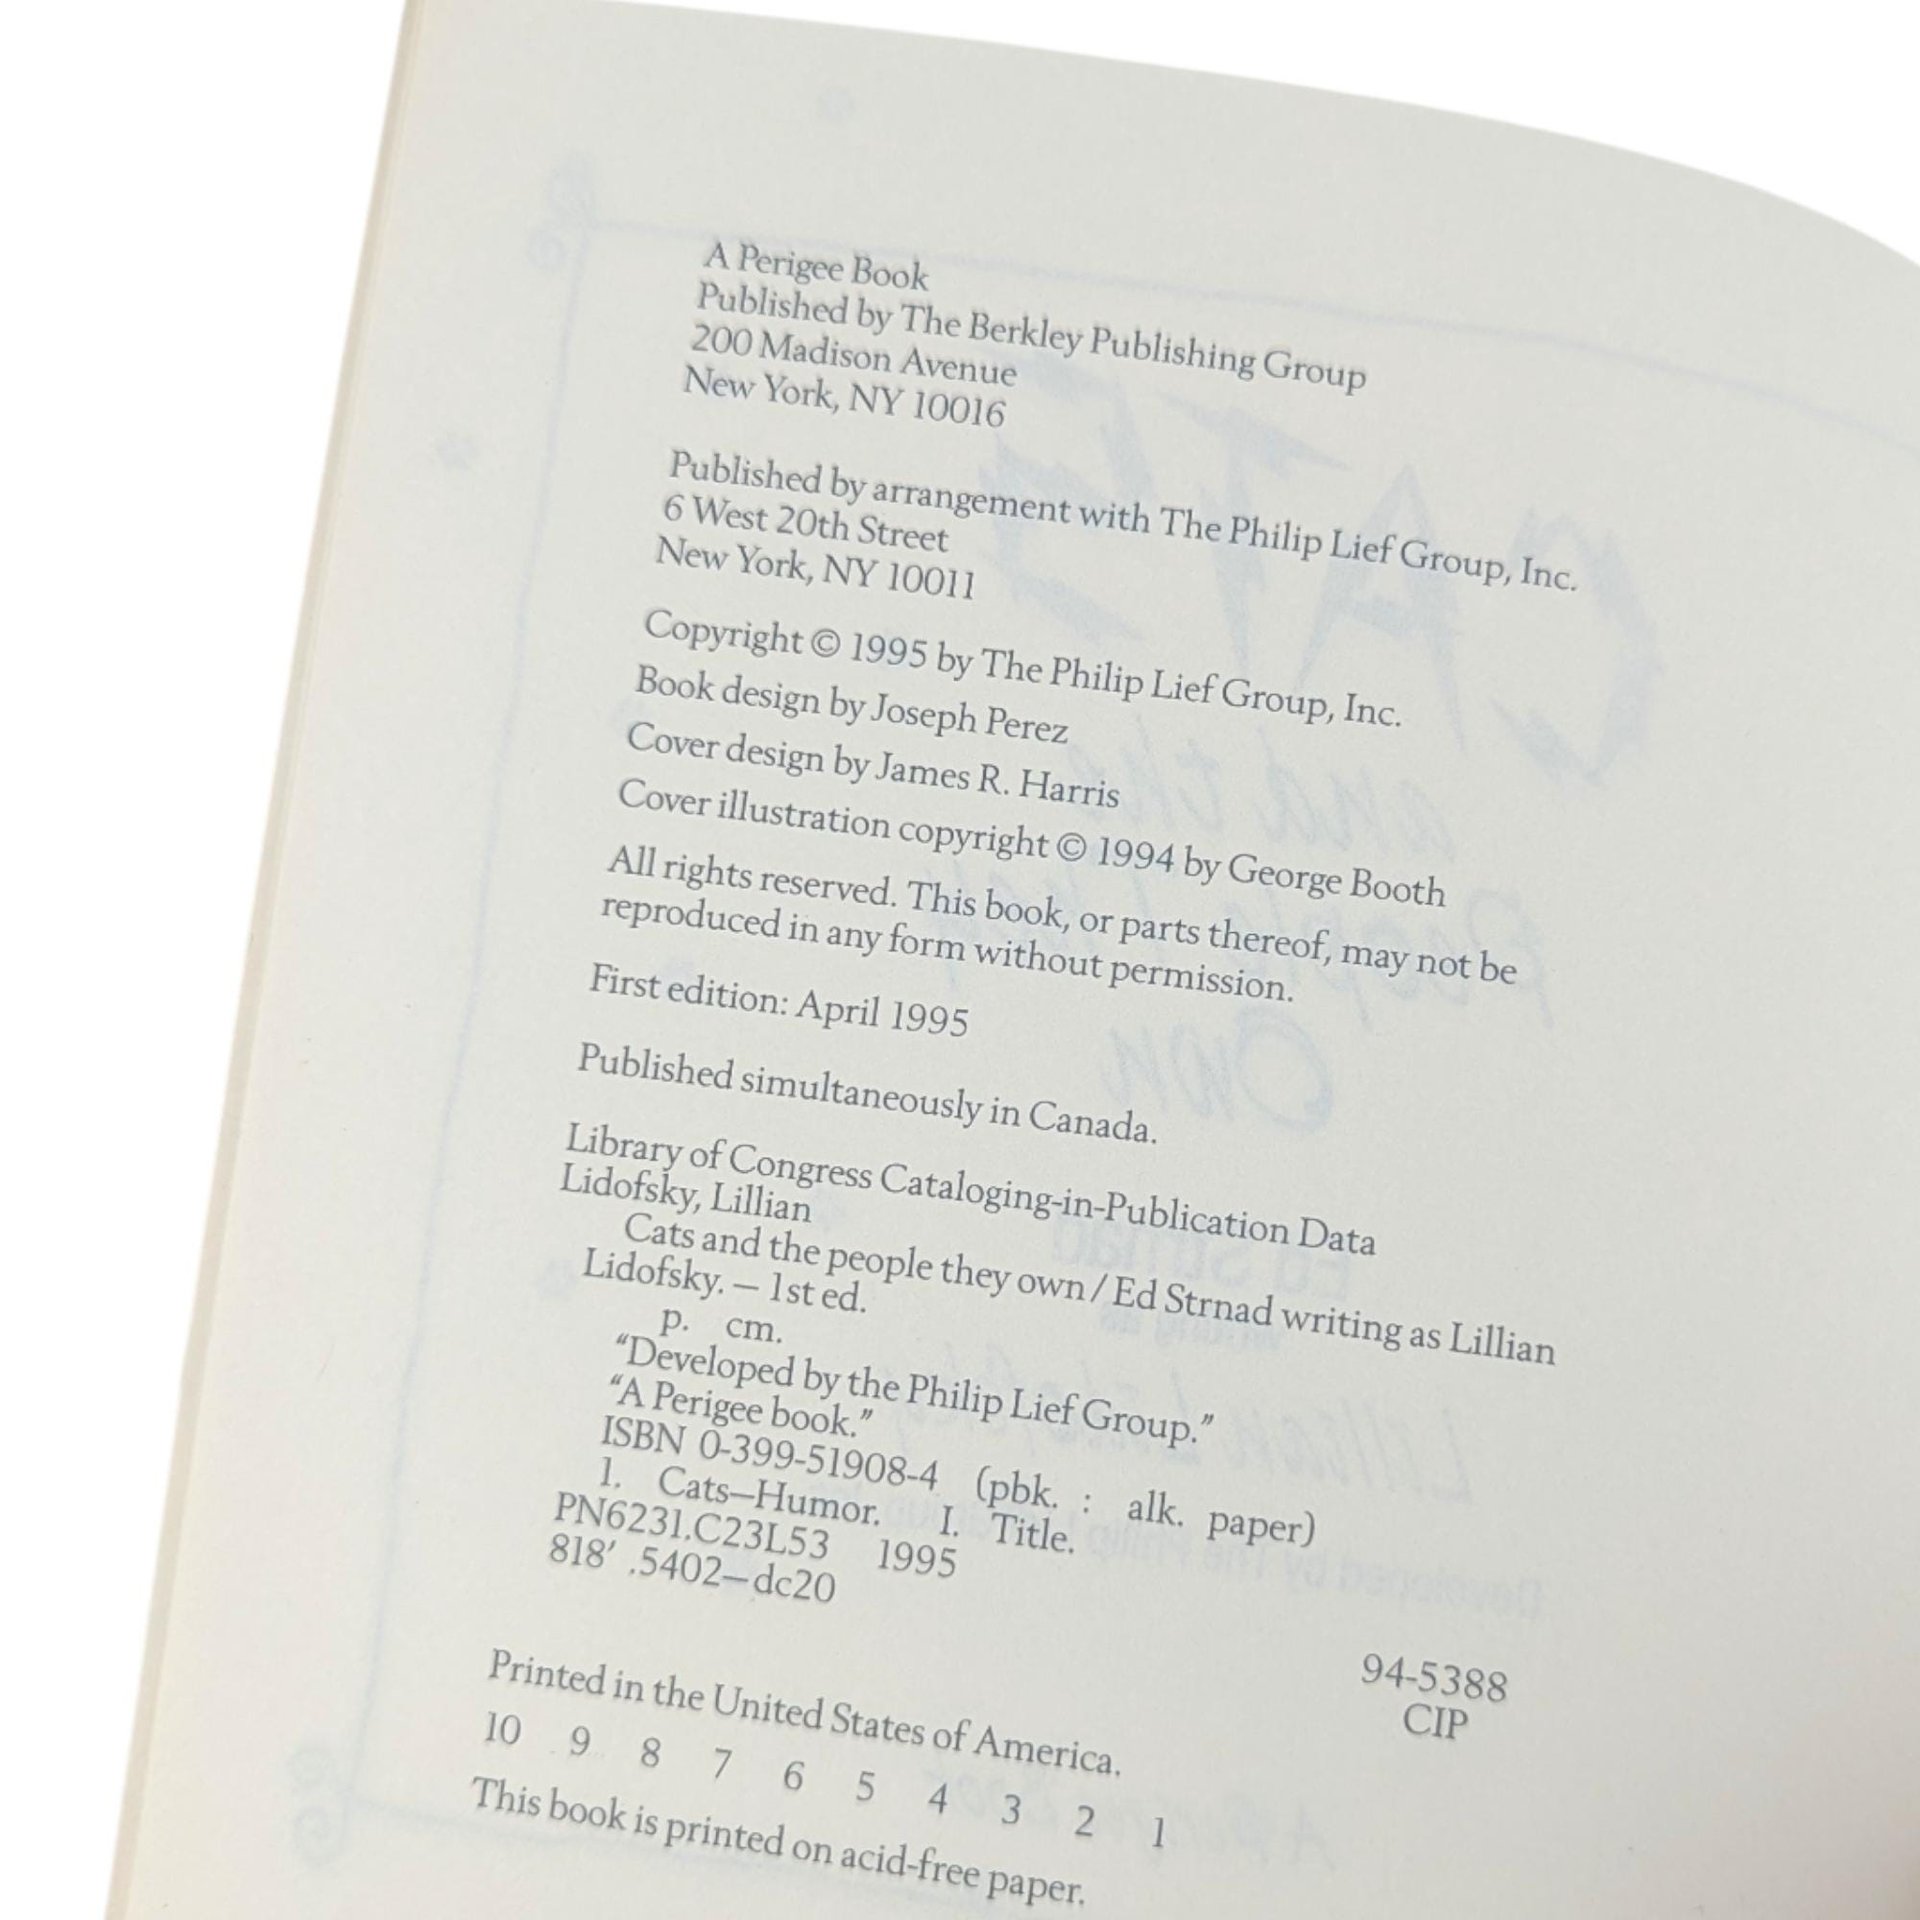 A Perigee Book
Published by The Berkley Publishing Group
200 Madison Avenue
New York, NY 10016
Published by arrangement with The Philip Lief Group, Inc.
6 West 20th Street
New York, NY 10011
Copyright © 1995 by The Philip Lief Group, Inc.
Book design by Joseph Perez
Cover design by James R. Harris
Cover illustration copyright © 1994 by George Booth
All rights reserved. This book, or parts thereof, may not be
reproduced in any form without permission.
First edition: April 1995
Published simultaneously in Canada.
Library of Congress Cataloging-in-Publication Data
Lidofsky, Lillian
Cats and the people they own / Ed Strnad writing as Lillian
Lidofsky. — 1st ed.
p. cm.
“Developed by the Philip Lief Group.”
“A Perigee book.”
ISBN 0-399-51908-4 (pbk. : alk. paper)
1. Cats—Humor. I. Title.
PN6231.C23L53 1995
818′ .5402—dc20
94-5388
CIP
Printed in the United States of America.
10 9 8 7 6 5 4 3 2 1
This book is printed on acid-free paper.